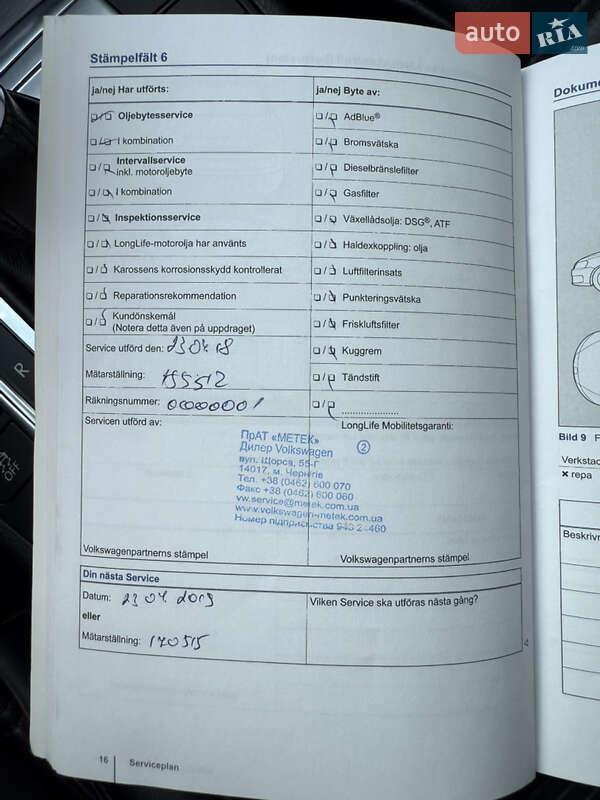 auto RIA.com
Stämpelfält 6
ja/nej Har utförts:
Oljebytesservice
I kombination
Intervallservice
inkl. motoroljebyte
I kombination
Inspektionsservice
LongLife-motorolja har använts
Karossens korrosionsskydd kontrollerat
Reparationsrekommendation
Kundönskemål
(Notera detta även på uppdraget)
Service utförd den: 23 04 18
Mätarställning: 155512
Räkningsnummer:
Servicen utförd av:
ja/nej Byte av:
AdBlue®
Bromsvätska
Dieselbränslefilter
Gasfilter
Växellådsolja: DSG®, ATF
Haldexkoppling: olja
Luftfilterinsats
Punkteringsvätska
Friskluftsfilter
Kuggrem
Tändstift
LongLife Mobilitetsgaranti:
ПрАТ «МЕТЕК»
Дилер Volkswagen
вул. Щорса, 55-Г
14017, м. Чернігів
Тел. +38 (0462) 600 070
Факс +38 (0462) 600 060
vw.service@metek.com.ua
www.volkswagen-metek.com.ua
Номер підприємства
2
Volkswagenpartnerns stämpel
Volkswagenpartnerns stämpel
Din nästa Service
Datum: 23 04 2019
eller
Mätarställning: 170515
Vilken Service ska utföras nästa gång?
16 Serviceplan
Bild 9
repa